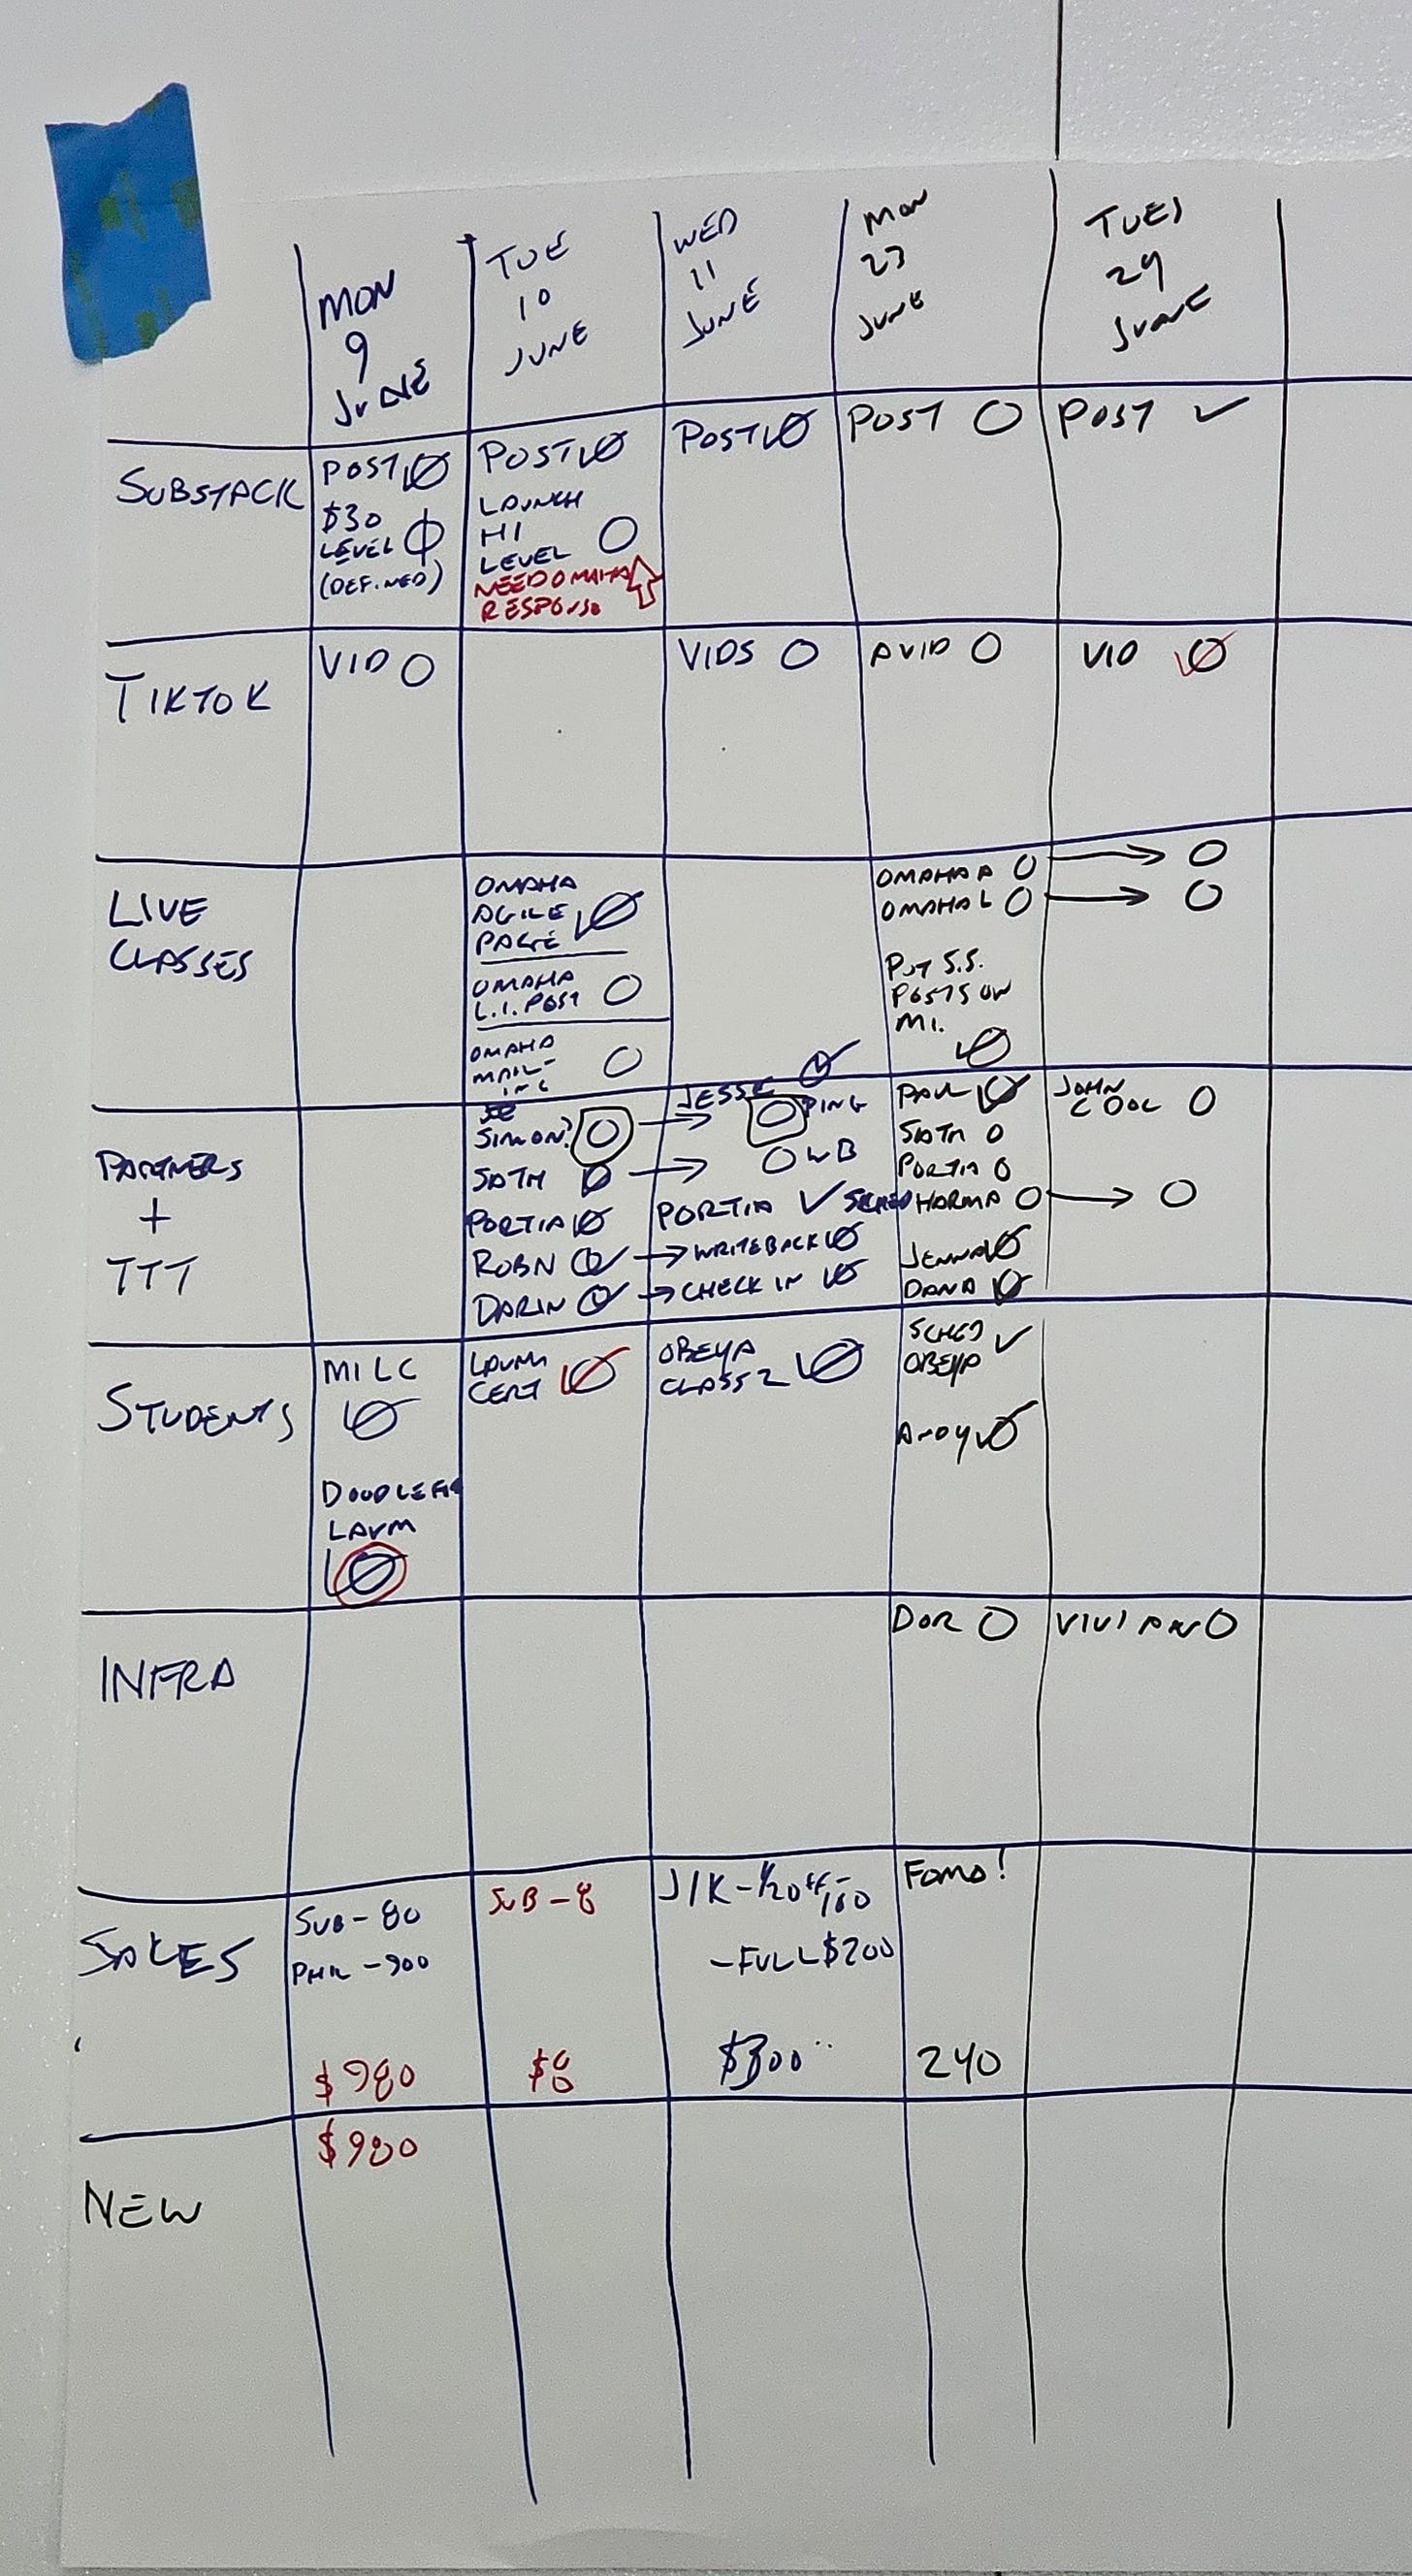 MON
9
JUNE
TUE
10
JUNE
WED
11
JUNE
MON
23
JUNE
TUES
24
JUNE
SUBSTACK
POST
$30
LEVEL
(DEFINED)
POST
LAUNCH
HI
LEVEL
NEED OMAHA
RESPONSE
POST
POST
POST
TIKTOK
VID
VIDS
AVID
VID
LIVE
CLASSES
OMAHA
AGILE
PAGE
OMAHA
L.I. POST
OMAHA
MAIL-
ING
OMAHA A
OMAHA L
PUT S.S.
POSTS ON
M.I.
PARTNERS
+
TTT
SIMON?
SATM
PORTIA
ROBN
DARIN
JESSE
PING
WB
PORTIA SCHED
WRITEBACK
CHECK IN
PAUL
SATM
PORTIA
HARMA
JENNA
DANA
JOHN
COOL
STUDENTS
MILC
LAVM
LAVM
CERT
OBEYA
CLASS 2
SCHED
OBEYA
ANDY
INFRA
DOR
VIVIAN
SALES
SUB - 80
- 900
$980
SUB - 8
$8
J/K - 1/2 OFF - 100
- FULL $200
$300
FOMO!
240
NEW
$980